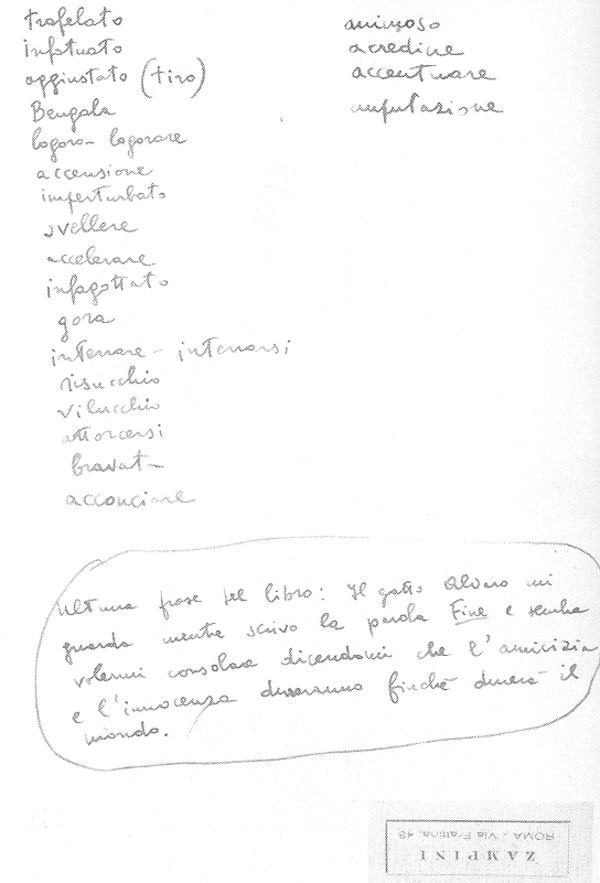 trafelato
infatuato
aggiustato (tiro)
Bengala
logoro - logorare
accensione
imperturbato
svellere
accelerare
infagottato
gora
interrare - interrarsi
risucchio
vilucchio
attorcersi
bravat
acconciare
animoso
acredine
accentuare
amputazione
Ultima frase del libro: Il gatto Alvaro mi
guarda mentre scrivo la parola Fine e sembra
volermi consolare dicendomi che l'amicizia
e l'innocenza dureranno finchè durerà il
mondo.
ZAMPINI
ROMA - Via Frattina, 48